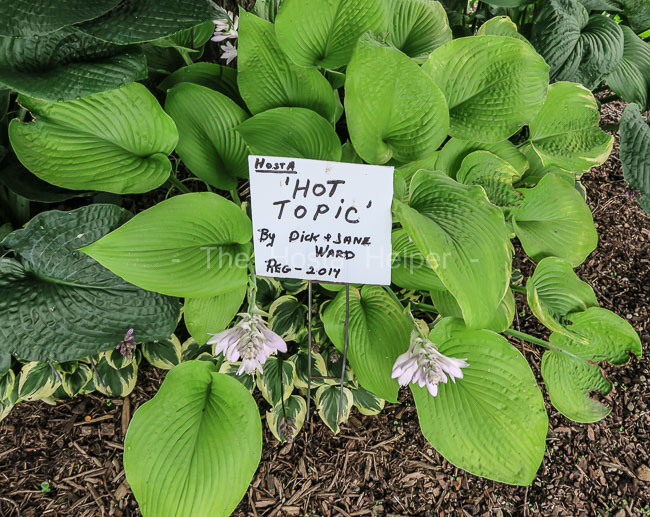 HOSTA
'HOT
TOPIC'
By DICK & JANE
WARD
REG - 2014
The Hosta Helper